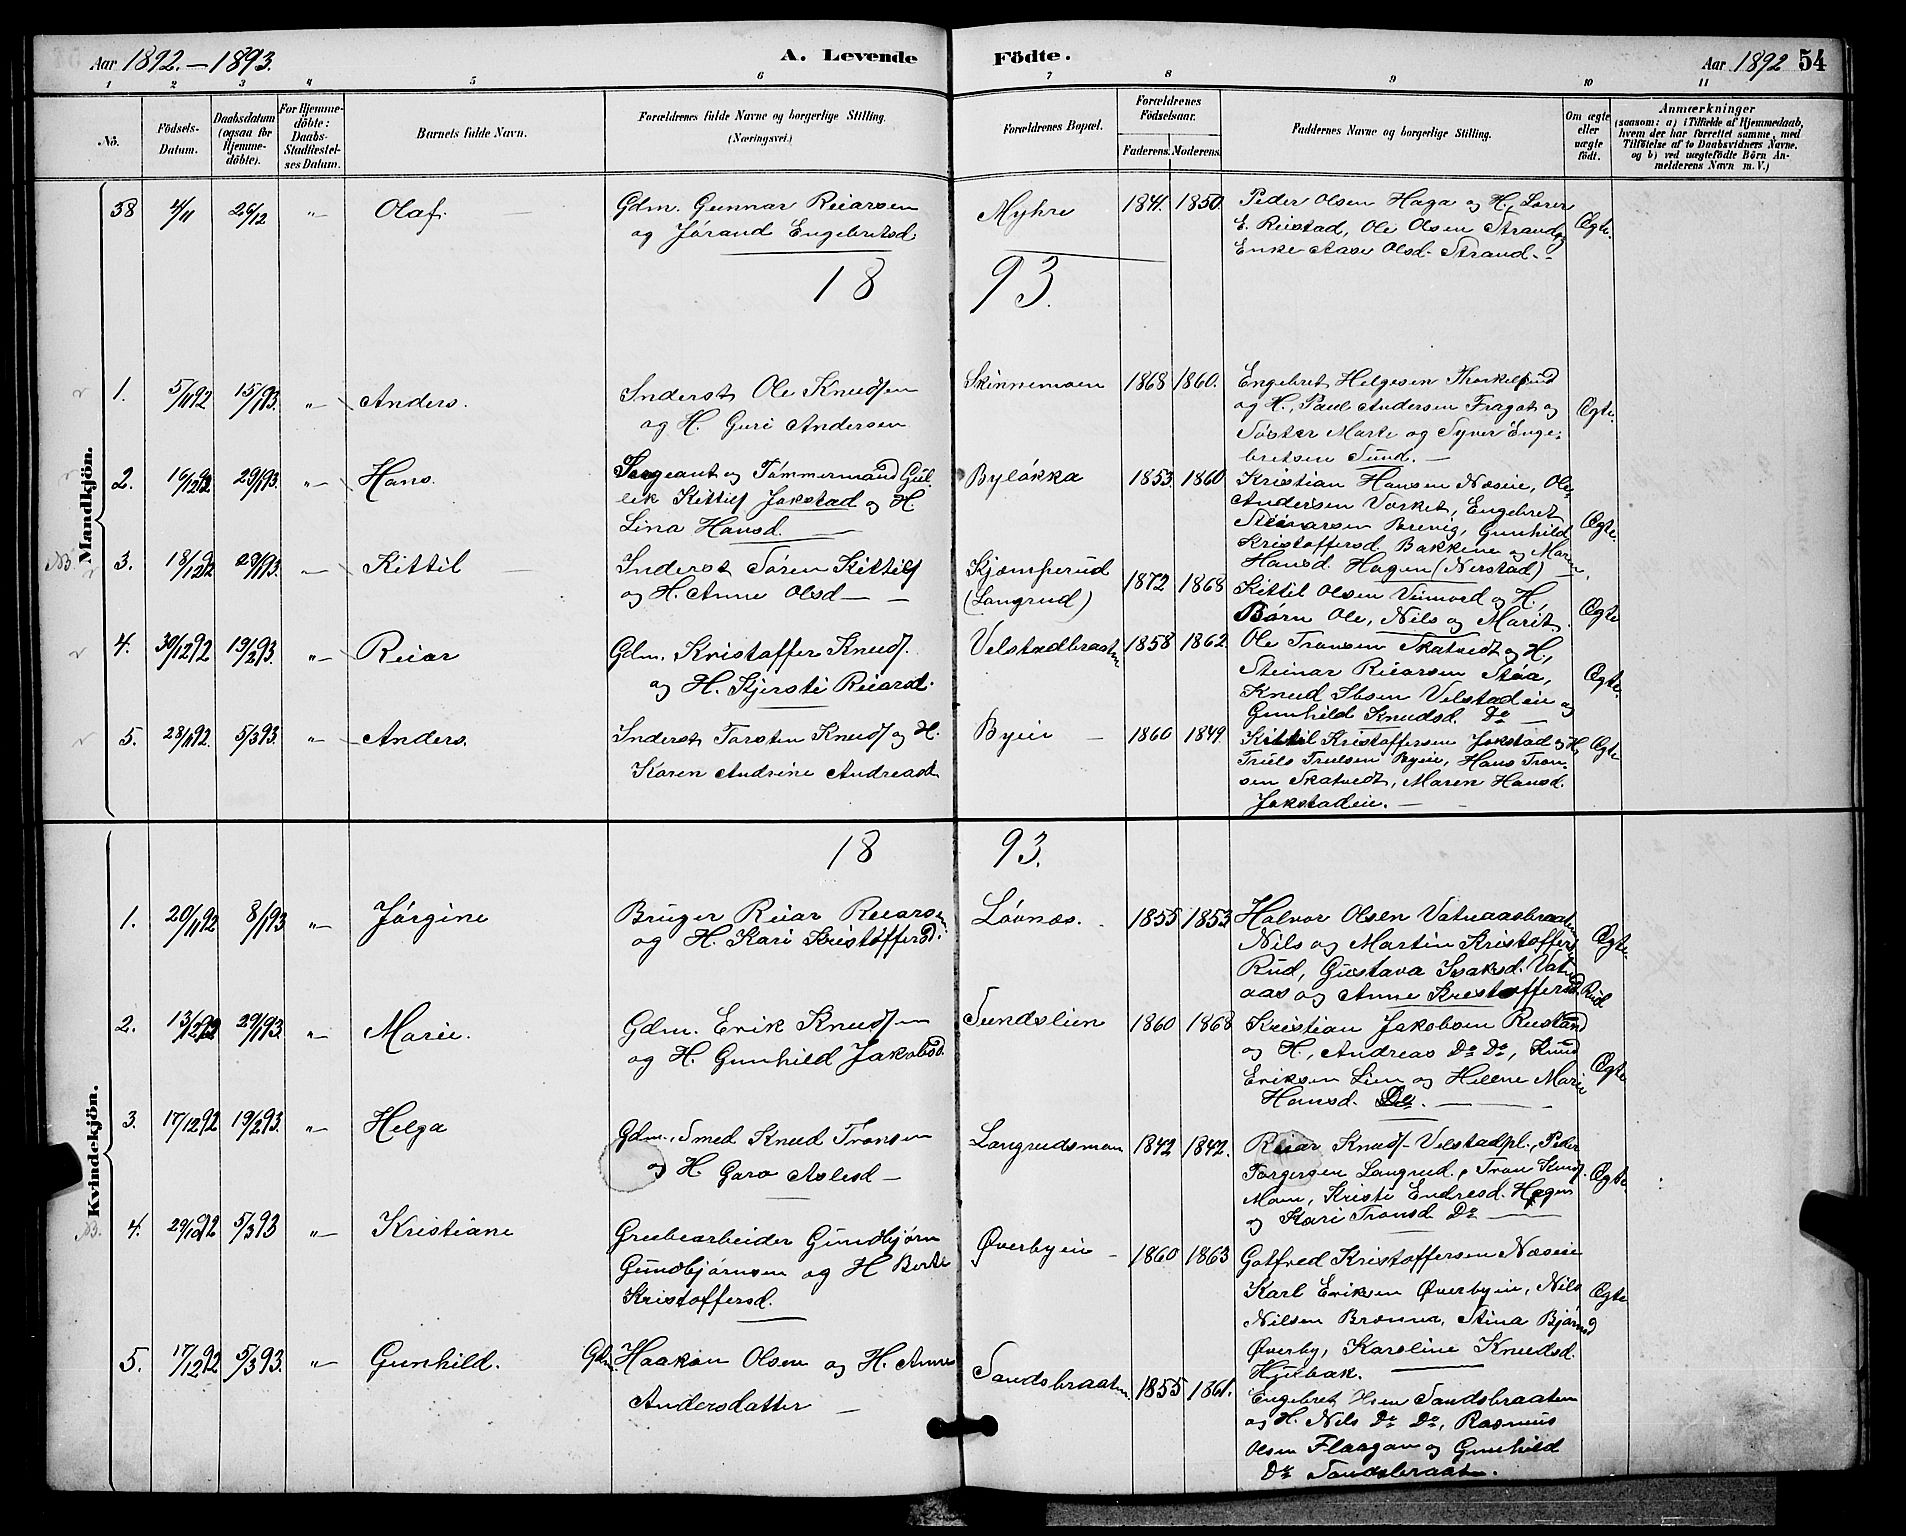 Aar 1892.-1893.
A. Levende Födte.
Aar 1892 54
1 2 3 4 5 6 7 8 9 10 11
No.
Födsels-Datum.
Daabsdatum (ogsaa for Hjemmedöbte).
For Hjemmedöbte: Daabs-Stadfæstelses Datum.
Barnets fulde Navn.
Forældrenes fulde Navne og borgerlige Stilling.
(Næringsvei.)
Forældrenes Bopæl.
Forældrenes Födselsaar.
Faderens. Moderens.
Faddernes Navne og borgerlige Stilling.
Om ægte eller uægte födt.
Anmærkninger
(saasom: a) i Tilfælde af Hjemmedaab,
hvem der har forrettet samme, med
Tilföielse af to Daabsvidners Navne.
og b) ved uægtefödte Börn An-
melderens Navn m. V.)
Mandkjön.
38 4/11 26/12 „ Olaf.
Gdm. Gunnar Reiarsen
og Jørand Engebretsd.
Myhre 1841. 1850.
Peder Olsen Haga og H.,
E. Reistad, Ole Olsen Strand og
Enke Aase Olsd. Strand.
Ægte.
18 93.
1. 5/11 92 15/1 93. „ Anders.
Inderst Ole Knudsen
og H. Guri Andersen
Skinnemoen 1868 1860.
Engebret Helgesen Thorkelsrud
og H., Paul Andersen Fragot og
Søster Marte og Syver Enge-
bretsen Sund.
Ægte.
2. 16/12 92 29/1 93. „ Hans.
Sergeant og Tømmermand Gul-
lik Kittels Jokstad og H.
Lina Hansd.
Byløkka 1853 1860
Kristian Hansen Næseie, Ole
Andersen Vorket, Engebret
Steinarsen Brevig, Gunhild
Kristoffersd. Bakkene og Maren
Hansd. Hagen (Nerstad)
Ægte.
NB. 3. 18/12 92 29/1 93. „ Kittil
Inderst Søren Kittels
og H. Anne Olsd.
Kjæmperud
(Langrud)
1872 1868
Kittil Olsen Veimord og H.,
Børn Ole, Nils og Marit.
Ægte
4. 30/12 92 19/2 93. „ Reiar
Gdm. Kristoffer Knuds.
og H. Kjersti Reiarsd.
Velstadbraaten 1858 1862.
Ole Tronsen Skatvedt og H.,
Steinar Reiersen Støa,
Knud Ibsen Velstadeie og
Gunhild Knudsd. Do
Ægte.
5. 28/11 92. 5/3 93. „ Anders.
Inderst Torsten Knuds og H.
Karen Andrine Andreasd.
Byeie 1860 1849.
Kittil Kristoffersen Jokstad og H.
Truls Trulsen Byeie, Hans Tron-
sen Skatvedt, Maren Hansd.
Jokstadeie.
Ægte
Kvindekjön.
18 93.
1. 20/11 92 8/1 93 „ Jørgine
Bruger Reiar Reiarsen
og H. Kari Kristoffersd.
Løvnæs. 1855 1853
Halvor Olsen Vatnaasbraaten
Nils og Martin Kristoffers.
Rud, Gustava Isaksd. Vatn-
aas og Anne Kristoffersd. Rud
Ægte.
2. 13/12 92 29/1 93. „ Marie.
Gdm. Erik Knudsen
og H. Gunhild Jakobsd.
Sundslien 1860 1868
Kristian Jakobsen Rustand
og H., Andreas Do Do, Knud
Eriksen Lien og Helene Marie
Hansd. Do.
Ægte
3. 17/12 92 19/2 93. „ Helga
Gdm., Smed Knud Tronsen
og H. Goro Aslesd
Langrudsmoen 1842 1842.
Reiar Knuds. Velstadpl., Peder
Torgersen Langrud, Tron Knuds.
Moen, Kristi Endresd. Hagen
og Kari Tronsd. Do
Ægte.
NB. 4. 29/10 92 5/3 93 „ Kristiane
Grubearbeider Gundbjørn
Gundbjørnsen og H Berte
Kristoffersd.
Øverbyeie 1860 1863
Gotfred Kristoffersen Næseie
Karl Eriksen Øverbyeie, Nils
Nilsen Brænna, Stina Bjørnsd
Øverby, Karoline Knudsd.
Hjulbak.
Ægte
5. 17/12 92 5/3 93. „ Gunhild.
Gdm. Haakon Olsen og H. Anne
Andersdatter
Sandsbraaten 1855 1861.
Engebret Sandsbraaten
og H. Nils Do Do, Rasmus
Olsen Flaagan og Gunhild
Do Sandsbraat.